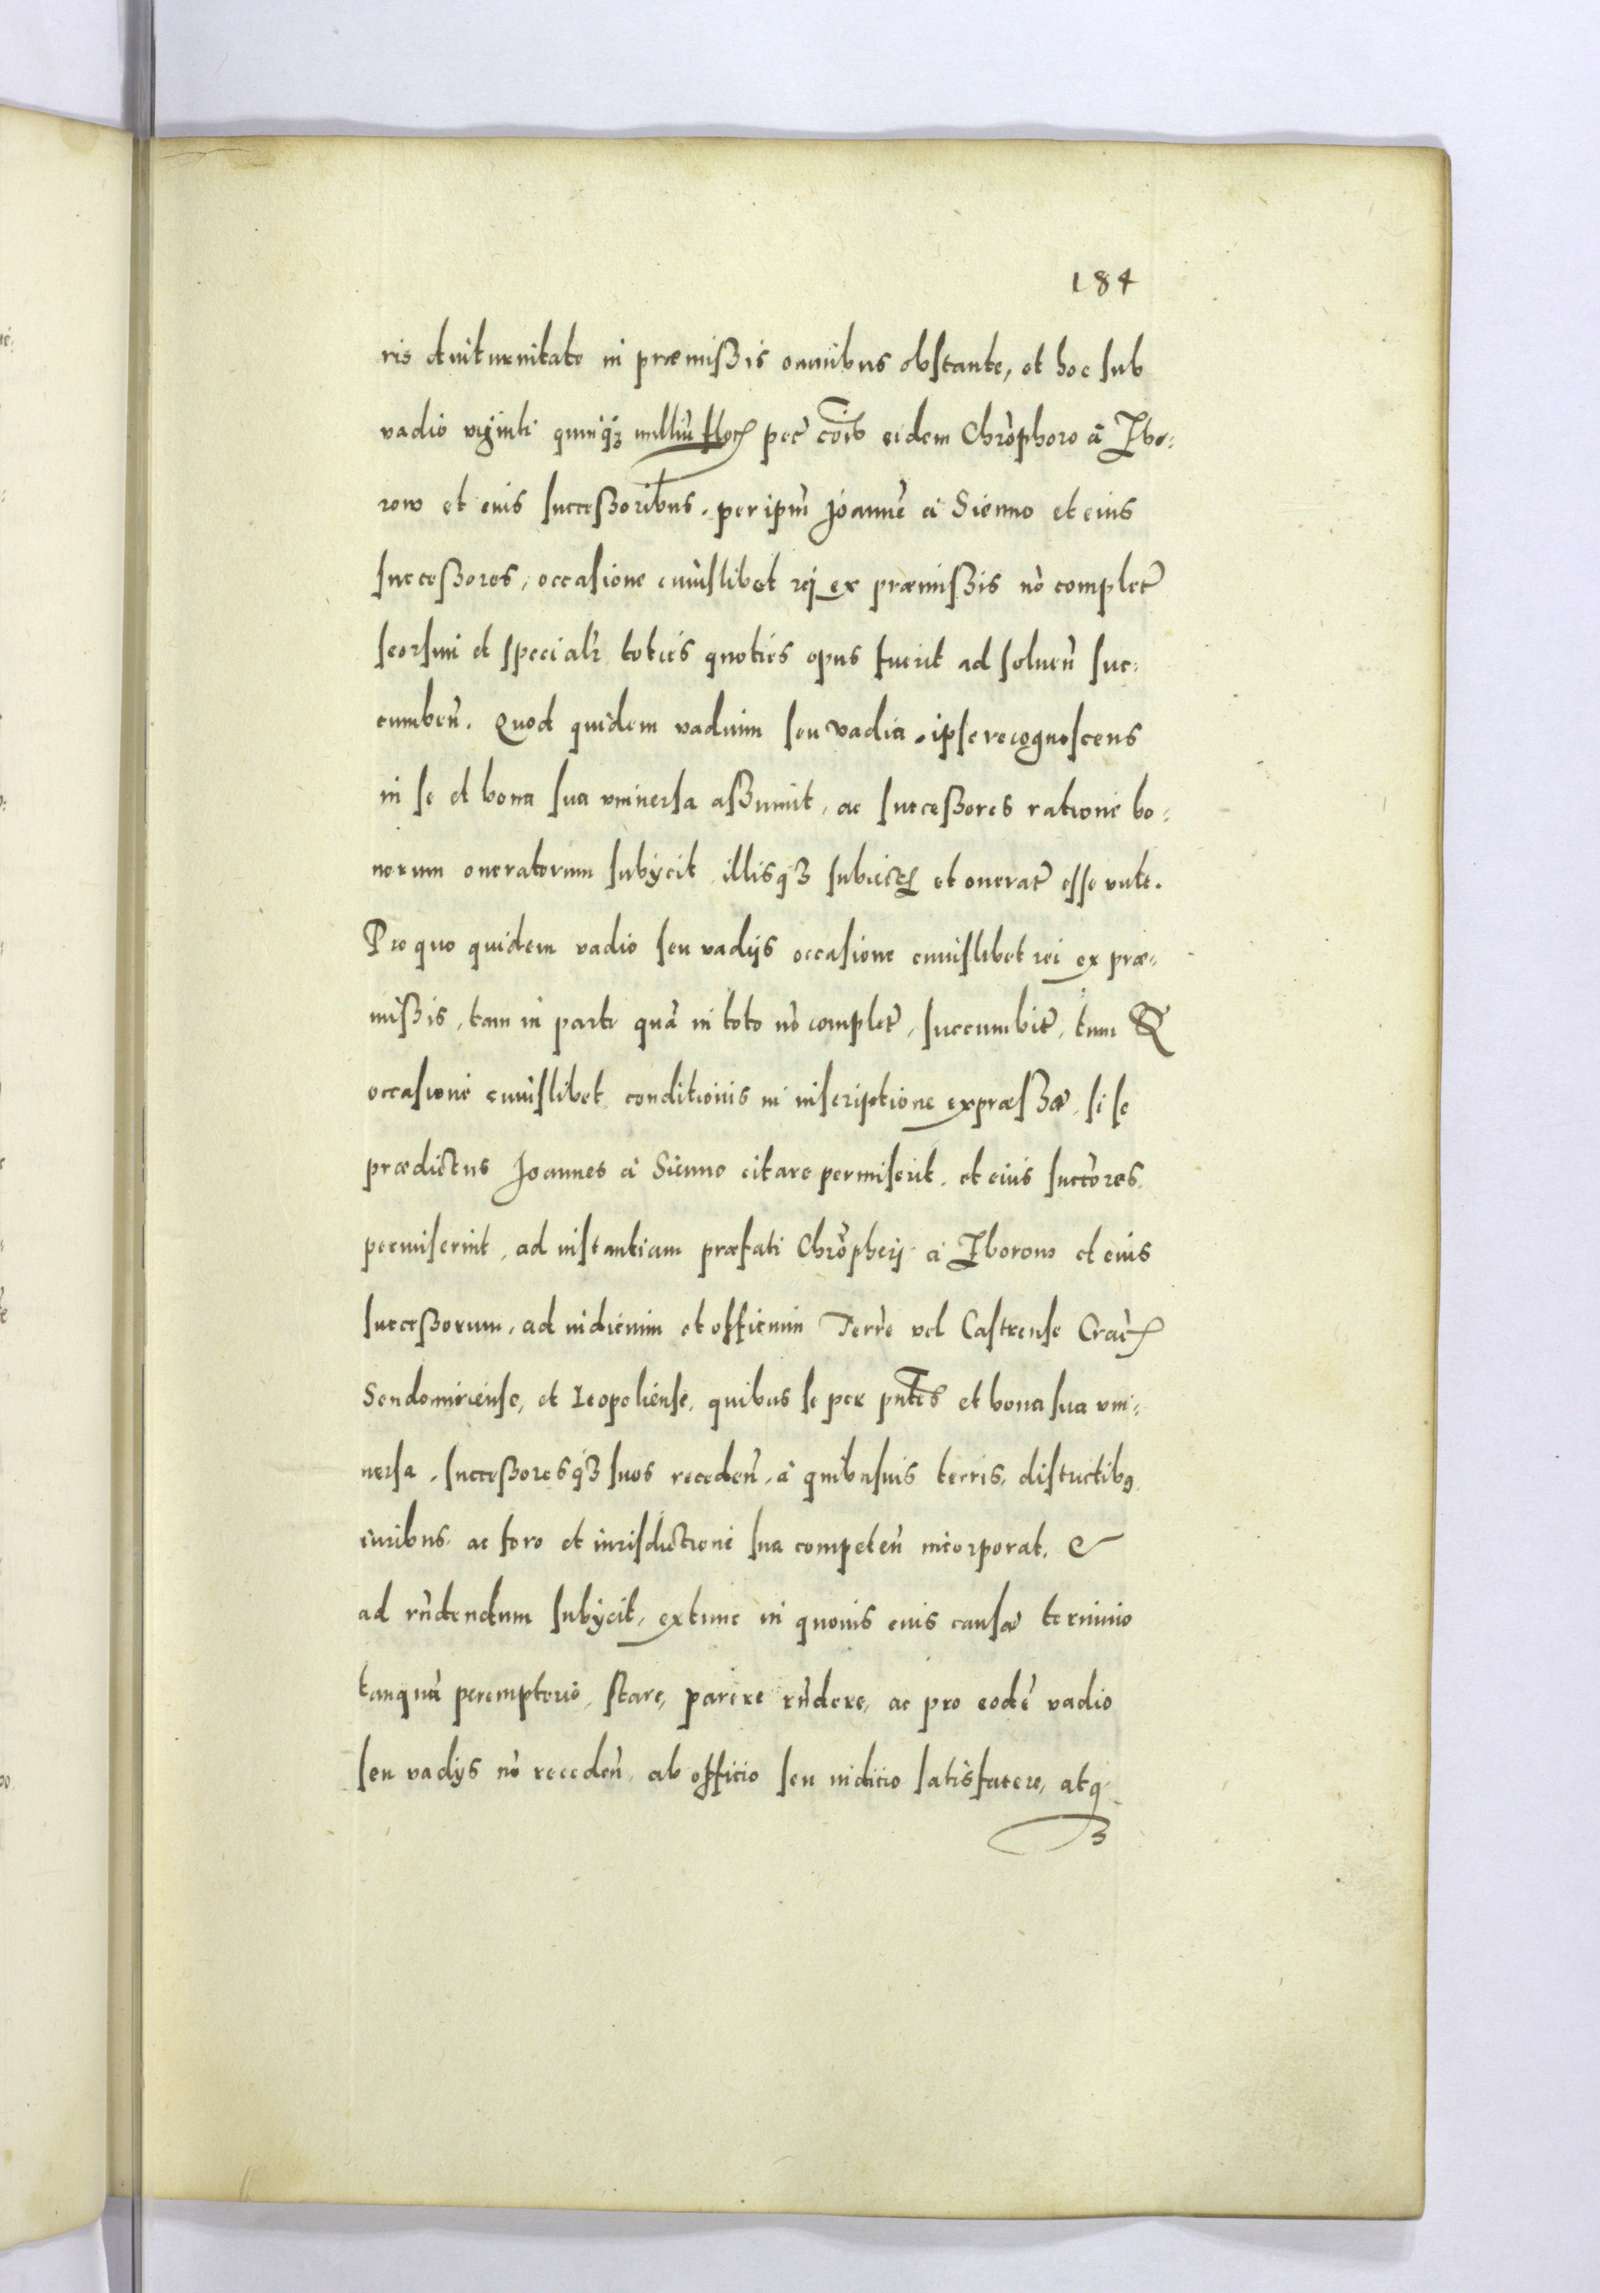 184
ris diuturnitate in præmißis omnibus obstante, et hoc sub
vadio viginti quinq₃ milliũ floꝝ pec̃ cõib eidem Chrõphoro à Zbo:
row et eius succeßoribus, per ipm̃ Joannẽ à Sienno et eius
succeßores, occasione cuiuslibet rej ex præmißis nõ complet̃
seorsim et specialr̃ toties quoties opus fuerit ad soluen̄ suc:
cumben̄. Quod quidem vadium seu vadia, ipse recognoscens
in se et bona sua vniuersa aßumit, ac succeßores ratione bo:
norum oneratorum subijcit, illisq₃ subiectꝭ et onerat̃ esse vult.
Pro quo quidem vadio seu vadijs occasione cuiuslibet rei ex præ:
mißis, tam in parte quã in toto nõ complet̃, succumbit̃, tum &
occasione cuiuslibet conditionis in inscriptione expræßæ, si se
prædictus Joannes à Sienno citare permiserit, et eius succõres
permiserint, ad instantiam præfati Chrõphorj à Zborow et eius
succeßorum, ad iudicium et officium Terr̃e vel Castrense Cracꝭ
Sendomiriense, et Leopoliense, quibus se per pñtes et bona sua vni:
uersa, succeßoresq₃ suos receden̄, à quibusuis terris, districtib9
iuribus, ac foro et iurisdictione sua competen̄ incorporat, &
ad rñdendum subijcit, extunc in quouis eius causæ termino
tanquã peremptorio, stare, parere rñdere, ac pro eodẽ vadio
seu vadijs nõ receden̄, ab officio seu iudicio satisfacere, atq₃